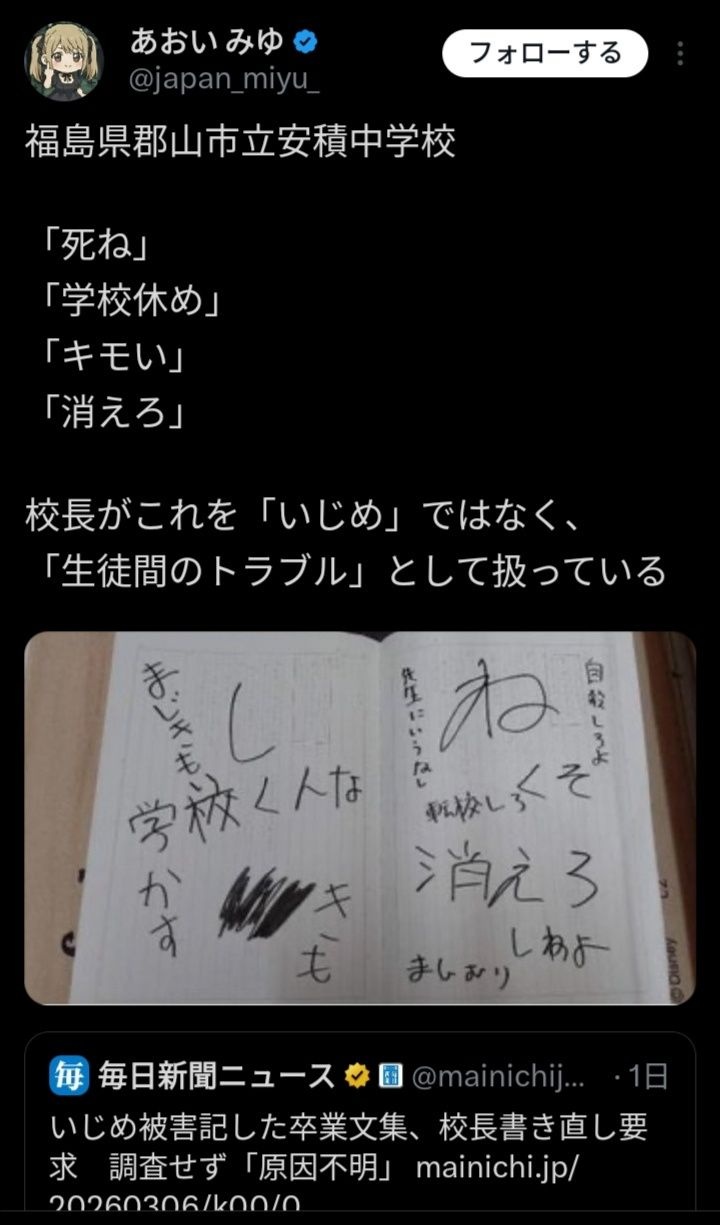 あおい みゆ
@japan_miyu_
フォローする
福島県郡山市立安積中学校
「死ね」
「学校休め」
「キモい」
「消えろ」
校長がこれを「いじめ」ではなく、
「生徒間のトラブル」として扱っている
まじきもい
し
学校くんな
かす
キも
自殺しろよ
ね
先生にいうなし
くそ
転校しろ
消えろ
しねよ
まじむり
©Disney
毎
毎日新聞ニュース
@mainichij... ・1日
いじめ被害記した卒業文集、校長書き直し要
求　調査せず「原因不明」 mainichi.jp/
20260306/k00/0